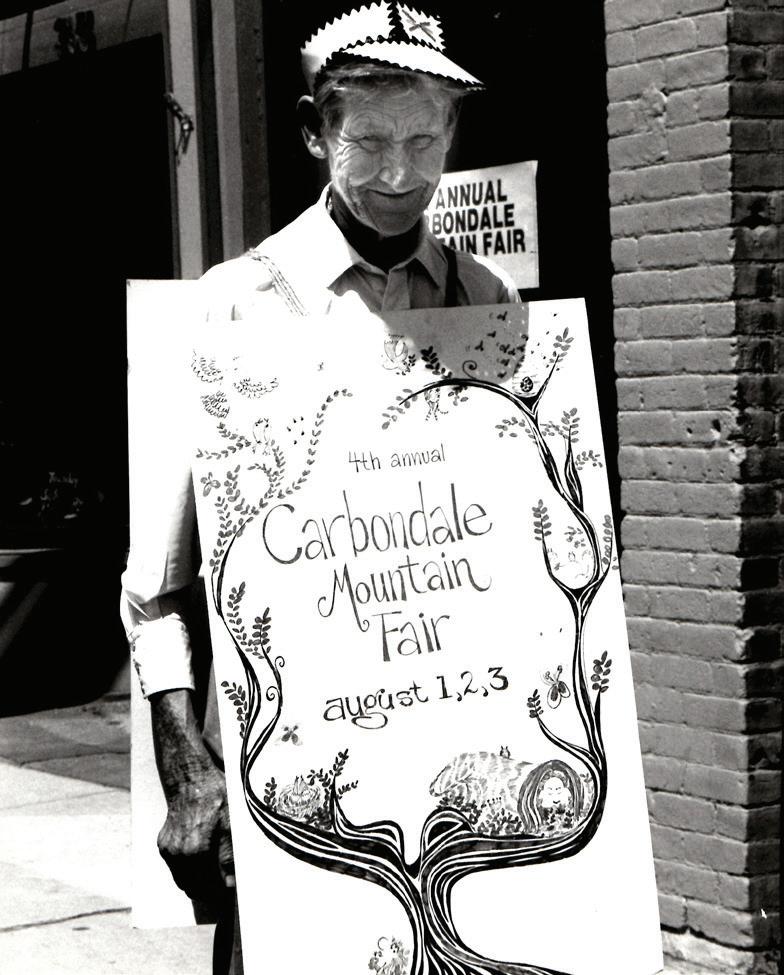 ANNUAL
BONDALE
AIN FAIR
4th annual
Carbondale
Mountain
Fair
august 1,2,3